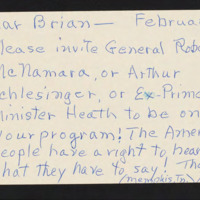 ear Brian— Februar
lease invite General Robe
McNamara, or Arthur
chlesinger, or Ex-Prime
inister Heath to be on
our program! The Amer
eople have a right to hear
hat they have to say! Tha
(Memphis, Tn.)